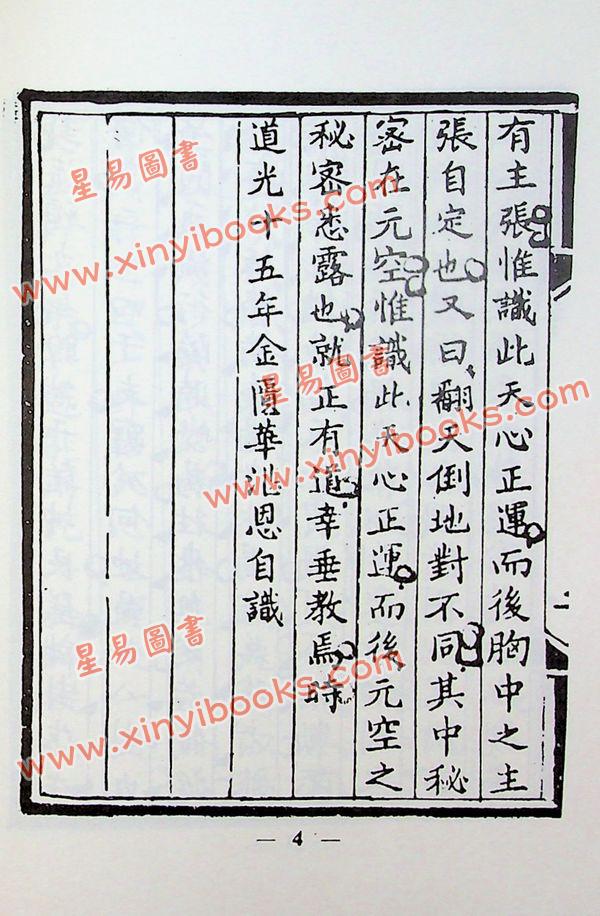 有主張惟識此天心正運而後胸中之主
張自定也又曰翻天倒地對不同其中秘
密在元空惟識此天心正運而後元空之
秘密悉露也就正有道幸垂教焉時
道光十五年金匱華湛恩自識
星易圖書
www.xinyibooks.com
星易圖書
www.xinyibooks.com
星易圖書
www.xinyibooks.com
— 4 —